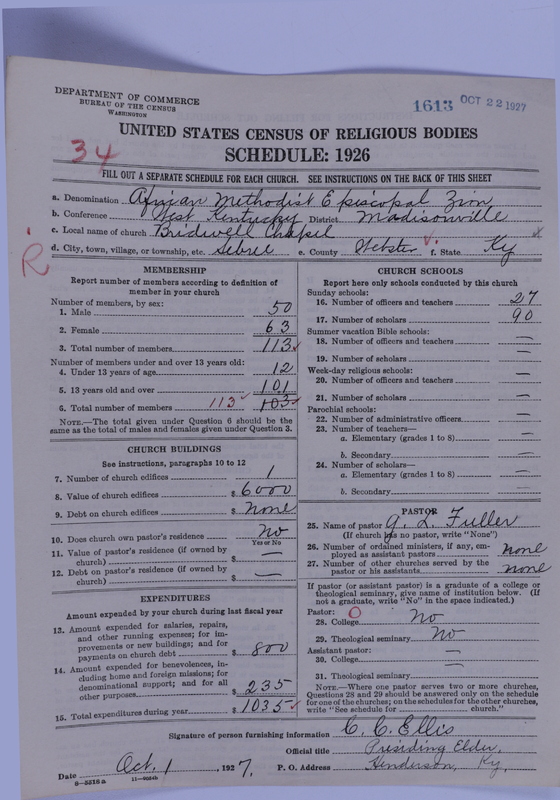 DEPARTMENT OF COMMERCE
BUREAU OF THE CENSUS
WASHINGTON
1613 OCT 22 1927
UNITED STATES CENSUS OF RELIGIOUS BODIES
34
SCHEDULE: 1926
FILL OUT A SEPARATE SCHEDULE FOR EACH CHURCH. SEE INSTRUCTIONS ON THE BACK OF THIS SHEET
a. Denomination African Methodist Episcopal Zion
b. Conference West Kentucky District Madisonville
c. Local name of church Bridwell Chapel
d. City, town, village, or township, etc. Sebree e. County Webster f. State Ky
R
MEMBERSHIP
Report number of members according to definition of
member in your church
Number of members, by sex:
1. Male 50
2. Female 63
3. Total number of members 113
Number of members under and over 13 years old:
4. Under 13 years of age 12
5. 13 years old and over 101
6. Total number of members 113 103
NOTE.—The total given under Question 6 should be
same as the total of males and females given under Question 3.
CHURCH BUILDINGS
See instructions, paragraphs 10 to 12
7. Number of church edifices 1
8. Value of church edifices $ 6000
9. Debt on church edifices $ None
10. Does church own pastor's residence No
Yes or No
11. Value of pastor's residence (if owned by
church) $ —
12. Debt on pastor's residence (if owned by
church) $ —
EXPENDITURES
Amount expended by your church during last fiscal year
13. Amount expended for salaries, repairs,
and other running expenses; for im-
provements or new buildings; and for
payments on church debt $ 800
14. Amount expended for benevolences, in-
cluding home and foreign missions; for
denominational support; and for all
other purposes $ 235
15. Total expenditures during year $ 1035
CHURCH SCHOOLS
Report here only schools conducted by this church
Sunday schools:
16. Number of officers and teachers 27
17. Number of scholars 90
Summer vacation Bible schools:
18. Number of officers and teachers —
19. Number of scholars —
Week-day religious schools:
20. Number of officers and teachers —
21. Number of scholars —
Parochial schools:
22. Number of administrative officers —
23. Number of teachers—
a. Elementary (grades 1 to 8) —
b. Secondary —
24. Number of scholars—
a. Elementary (grades 1 to 8) —
b. Secondary —
PASTOR
25. Name of pastor G. L. Fuller
(If church has no pastor, write "None")
26. Number of ordained ministers, if any, em-
ployed as assistant pastors None
27. Number of other churches served by the
pastor or his assistants None
If pastor (or assistant pastor) is a graduate of a college or
theological seminary, give name of institution below. (If
not a graduate, write "No" in the space indicated.)
Pastor: O
28. College No
29. Theological seminary No
Assistant pastor: —
30. College —
31. Theological seminary
NOTE.—Where one pastor serves two or more churches,
Questions 28 and 29 should be answered only on the schedule
for one of the churches; on the schedules for the other churches,
write "See schedule for church."
Signature of person furnishing information C. C. Ellis
Official title Presiding Elder,
Date Oct. 1, 1927. P. O. Address Henderson, Ky.